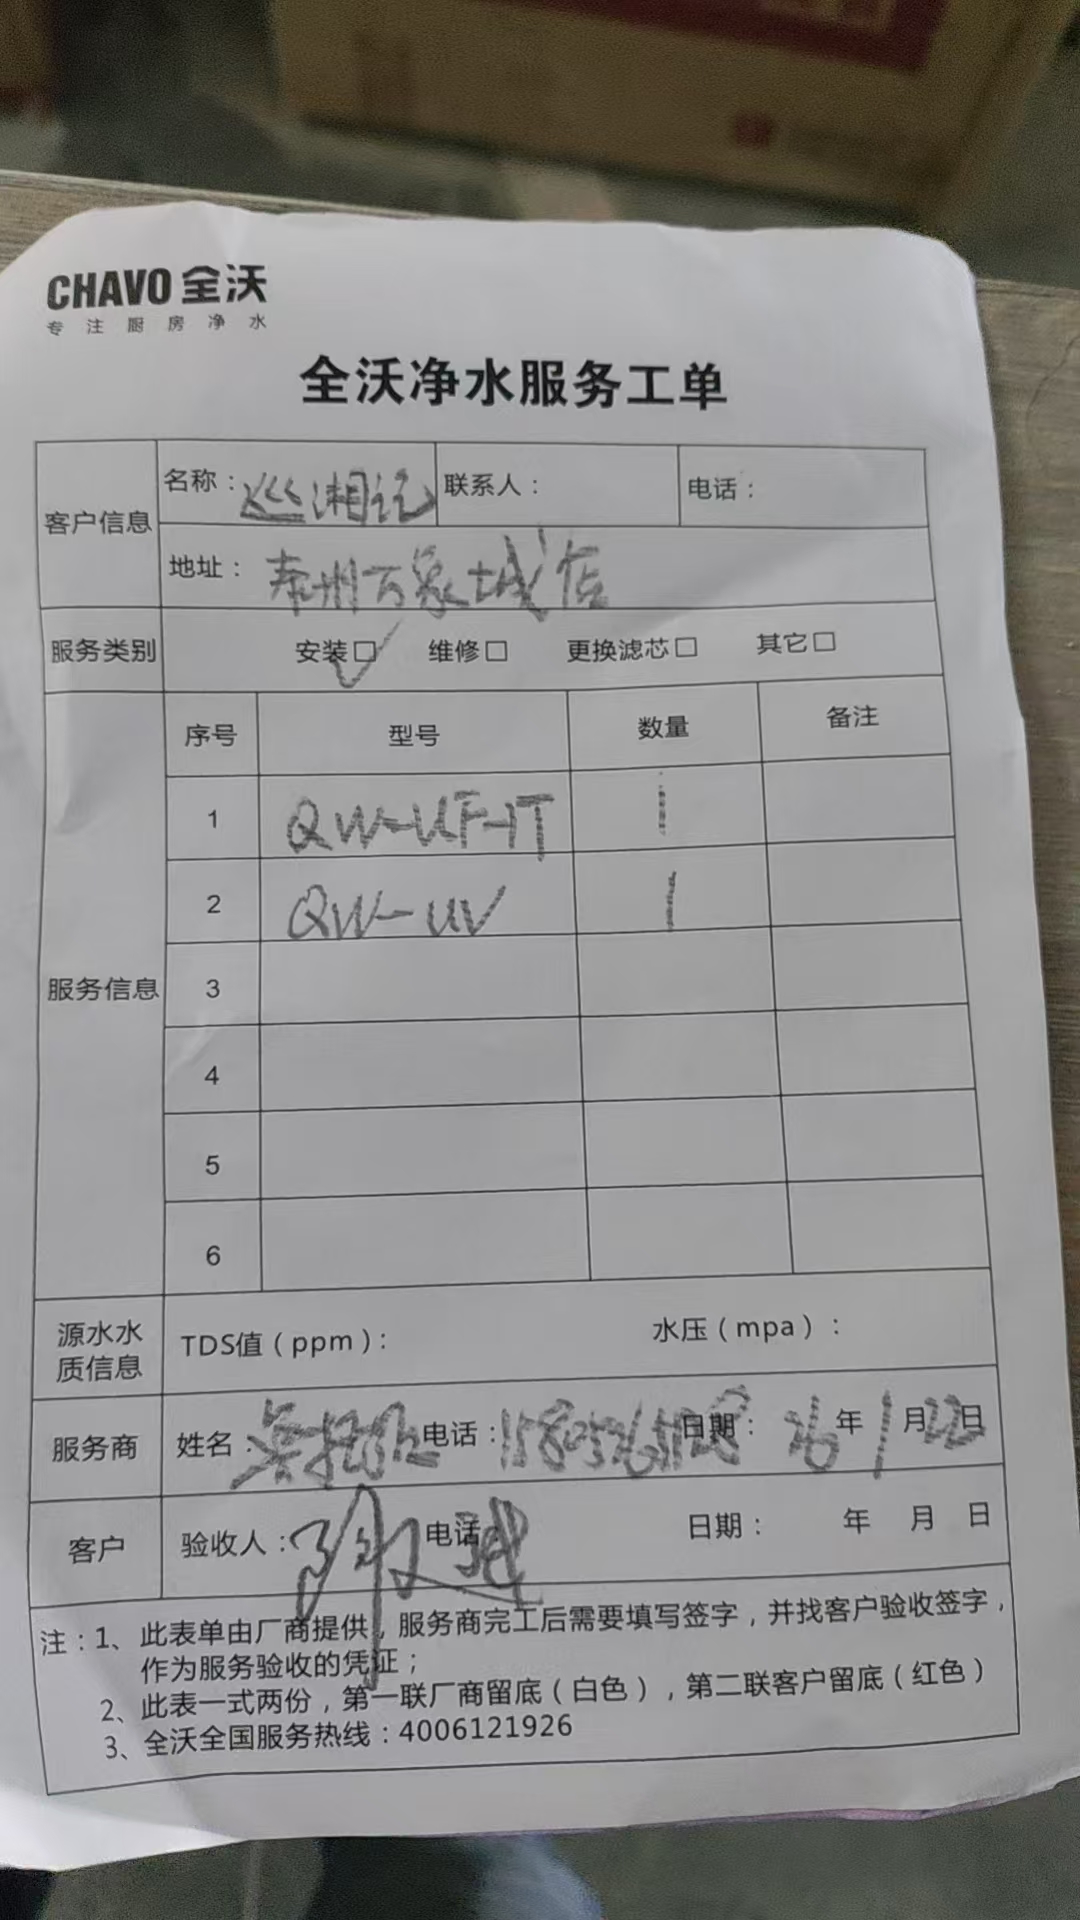 CHAVO 全沃
专注厨房净水
全沃净水服务工单
客户信息 名称：巡湘记 联系人： 电话：
地址：泰州万象城店
服务类别 安装☑ 维修□ 更换滤芯□ 其它□
服务信息 序号 型号 数量 备注
1 QW-UF-1T 1
2 QW-UV 1
3
4
5
6
源水水质信息 TDS值（ppm）： 水压（mpa）：
服务商 姓名： 电话： 日期：26年1月22日
客户 验收人： 电话： 日期： 年 月 日
注：1、此表单由厂商提供，服务商完工后需要填写签字，并找客户验收签字，
作为服务验收的凭证；
2、此表一式两份，第一联厂商留底（白色），第二联客户留底（红色）
3、全沃全国服务热线：4006121926